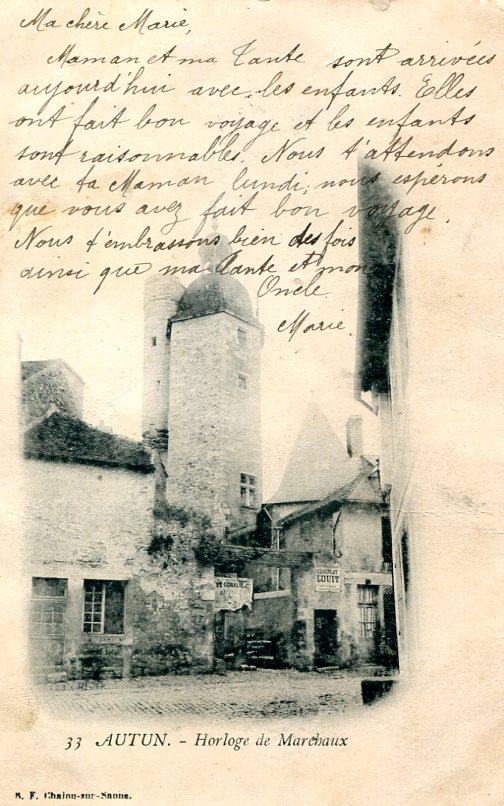 Ma chère Marie,
Maman et ma Tante sont arrivées
aujourd'hui avec les enfants. Elles
ont fait bon voyage et les enfants
sont raisonnables. Nous t'attendons
avec ta Maman lundi; nous espérons
que vous avez fait bon voyage.
Nous t'embrassons bien des fois
ainsi que ma Tante et mon
Oncle.
Marie.
CHOCOLAT
LOUIT
33 AUTUN. - Horloge de Marchaux
B. F. Chalon-sur-Saone.